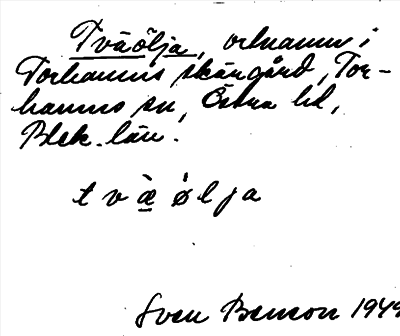 Tväölja, ortnamn i
Torhamns skärgård, Tor-
hamns sn, Östra hd,
Blek. län.
t v æ̀ ø l j a
Sven Benson 1949